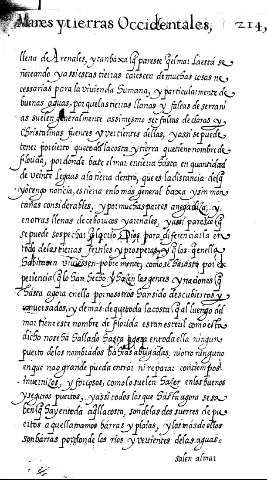 Mares y tierras Occidentales, 214,
llena de Arenales, y tan baxa q̃ parese q̃ el mar la está
y assi estas tierras caresen de muchas cosas ne
cessarias para la vivienda humana, y particularmente de
buenas aguas, porque las tierras llanas y faltas de serrani
as suelen generalmente assimesmo ser faltas de claras y
christalinas fuentes y vertientes dellas, y assi se puede
tener por cierto que toda la costa y tierra que tiene nombre de
florida, por donde bate el mar en tierra hasta en quantidad
de veinte leguas a la tierra dentro, que es la distancia de q̃
yo tengo noticia, es tierra en lo mas general baxa y sin mon
tañas considerables, y por muchas partes anegadiza, y
en otras llena de y arenales, y assi paresse q̃
se puede sospechar q̃ la hizo Dios para diferenciar la de
todas las tierras fertiles y prosperas, y q̃ los q̃ en ella
habitassen viviessen pobremente, como se ha visto por ex
periencia q̃ lo han hecho y hazen las gentes y naciones q̃
hasta agora en ella por nosotros han sido descubiertos y
conversados, y demas de que toda la costa q̃ al luengo del
mar tiene este nombre de florida es tan esteril como está
dicho no se ha hallado hasta agora en toda ella ningun
puerto de los nombrados ni otro ninguno
en que nao grande pueda entrar ni reparar con tiempos
y forçosos, como lo suelen hazer en los buenos
y seguros puertos, y assi todos los que hasta agora se sa
ben q̃ hay en toda aq̃lla costa, son de las des suertes de pu
ertos a que llamamos barras y platas, y los mas dellos
son barras por donde los rios y vertientes de las aguas
salen al mar